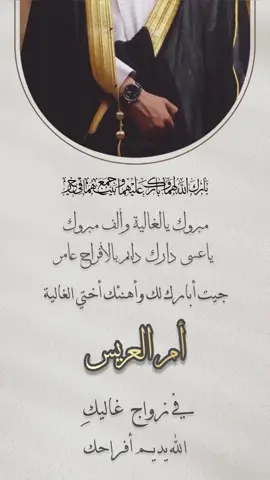 بارك الله لهما وبارك عليهما وجمع بينهما في خير
مبروك يالغالية وألف مبروك
ياعسى دارك دايم بالافراح عامر
جيت أبارك لك وأهنئك أختي الغالية
أم العريس
في زواج غاليكِ
الله يديم أفراحك